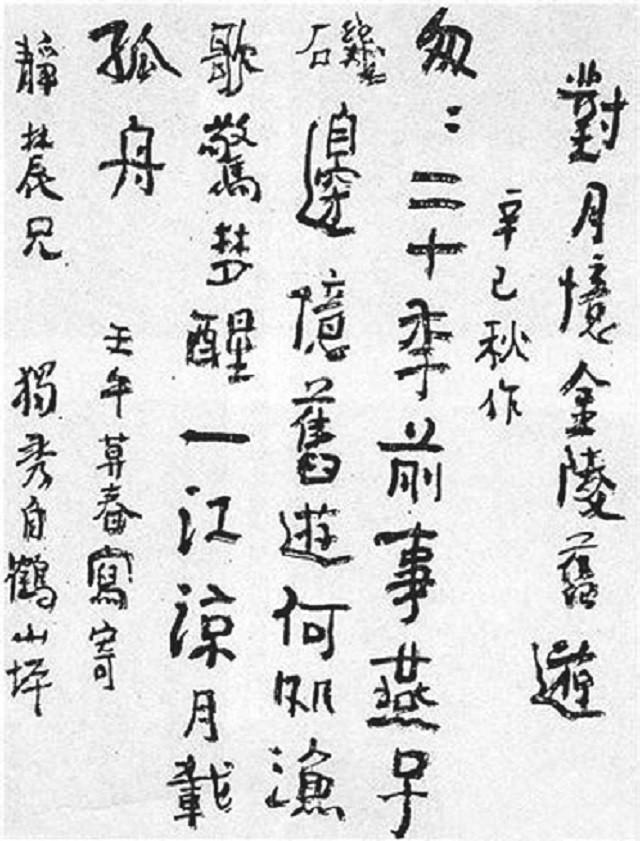 對月憶金陵舊遊
辛巳秋作
匆〻二十年前事燕子
磯邊憶舊遊何処漁
歌驚梦醒一江涼月載
孤舟
壬午暮春寫寄
靜農兄 獨秀自鶴山坪